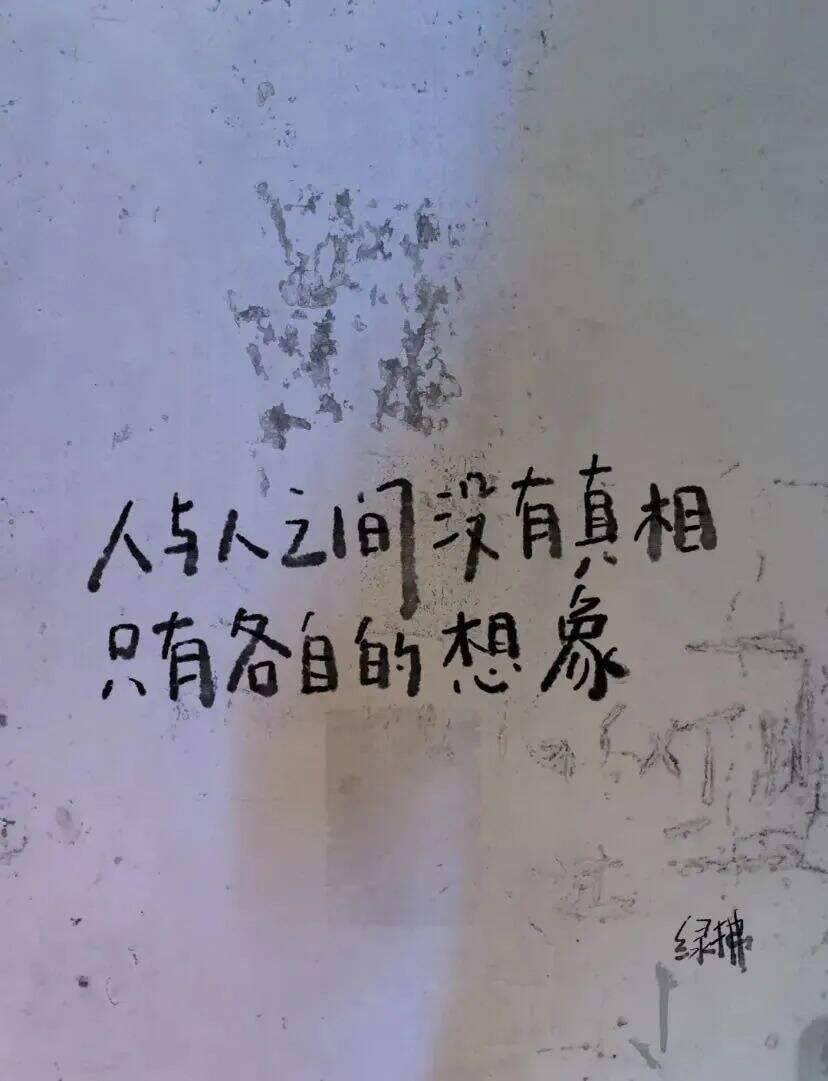 人与人之间没有真相
只有各自的想象
绿拂